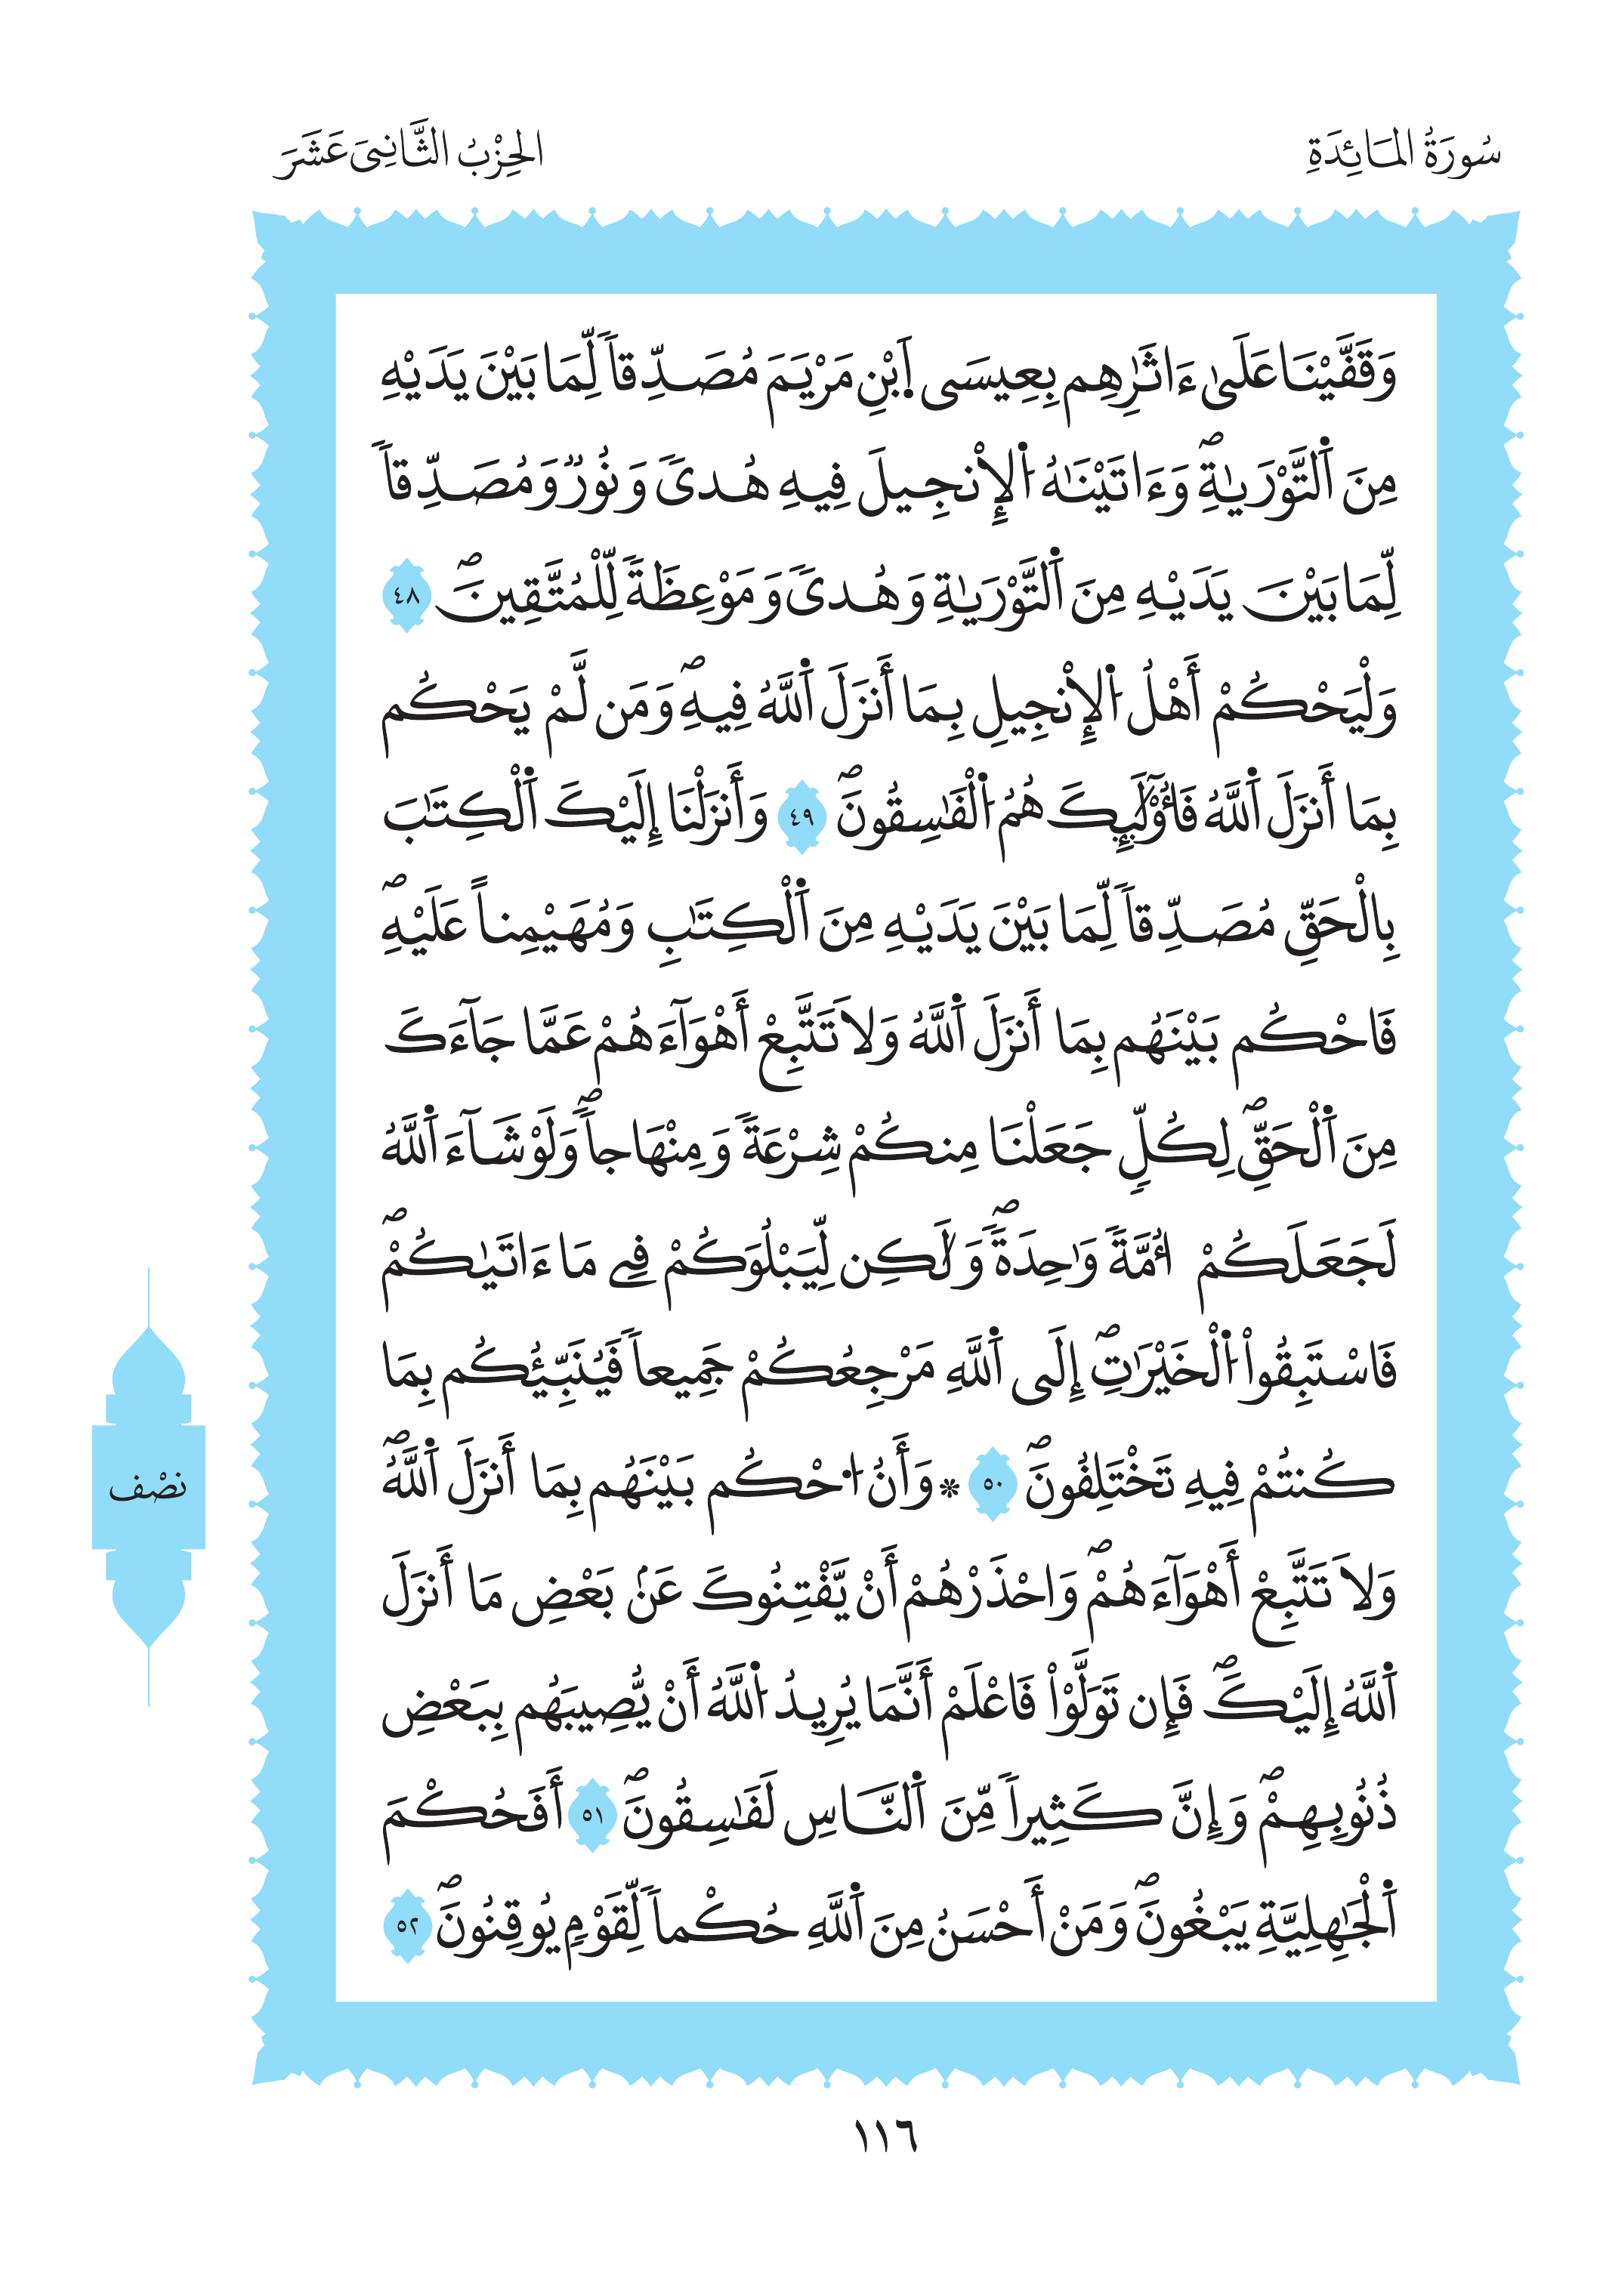 سُورَةُ الْمَائِدَةِ
الحِزْبُ الثَّانِىَ عَشَرَ
وَقَفَّيْنَا عَلَىٰ ءَاثَٰرِهِم بِعِيسَى اَ۪بْنِ مَرْيَمَ مُصَدِّقاٗ لِّمَا بَيْنَ يَدَيْهِ
مِنَ اَ۬لتَّوْرَيٰةِۖ وَءَاتَيْنَٰهُ اُ۬لْإِنْجِيلَ فِيهِ هُدىٗ وَنُورٞ وَمُصَدِّقاٗ
لِّمَا بَيْنَ يَدَيْهِ مِنَ اَ۬لتَّوْرَيٰةِ وَهُدىٗ وَمَوْعِظَةٗ لِّلْمُتَّقِينَۖ ٤٨
وَلْيَحْكُمْ أَهْلُ اُ۬لْإِنْجِيلِ بِمَا أَنزَلَ اَ۬للَّهُ فِيهِۖ وَمَن لَّمْ يَحْكُم
بِمَا أَنزَلَ اَ۬للَّهُ فَأُوْلَٰٓئِكَ هُمُ اُ۬لْفَٰسِقُونَۖ ٤٩ وَأَنزَلْنَا إِلَيْكَ اَ۬لْكِتَٰبَ
بِالْحَقِّ مُصَدِّقاٗ لِّمَا بَيْنَ يَدَيْهِ مِنَ اَ۬لْكِتَٰبِ وَمُهَيْمِناً عَلَيْهِۖ
فَاحْكُم بَيْنَهُم بِمَا أَنزَلَ اَ۬للَّهُ وَلَا تَتَّبِعْ أَهْوَآءَهُمْ عَمَّا جَآءَكَ
مِنَ اَ۬لْحَقِّۖ لِكُلّٖ جَعَلْنَا مِنكُمْ شِرْعَةٗ وَمِنْهَاجاٗۖ وَلَوْ شَآءَ اَ۬للَّهُ
لَجَعَلَكُمْ أُمَّةٗ وَٰحِدَةٗۖ وَلَٰكِن لِّيَبْلُوَكُمْ فِے مَا ءَاتَيٰكُمْۖ
فَاسْتَبِقُواْ اُ۬لْخَيْرَٰتِۖ إِلَى اَ۬للَّهِ مَرْجِعُكُمْ جَمِيعاٗ فَيُنَبِّئُكُم بِمَا
كُنتُمْ فِيهِ تَخْتَلِفُونَۖ ٥٠ * وَأَنُ اُ۟حْكُم بَيْنَهُم بِمَا أَنزَلَ اَ۬للَّهُۖ
وَلَا تَتَّبِعْ أَهْوَآءَهُمْۖ وَاحْذَرْهُمْ أَنْ يَّفْتِنُوكَ عَنۢ بَعْضِ مَا أَنزَلَ
اَ۬للَّهُ إِلَيْكَۖ فَإِن تَوَلَّوْاْ فَاعْلَمْ أَنَّمَا يُرِيدُ اُ۬للَّهُ أَنْ يُّصِيبَهُم بِبَعْضِ
ذُنُوبِهِمْۖ وَإِنَّ كَثِيراٗ مِّنَ اَ۬لنَّاسِ لَفَٰسِقُونَۖ ٥١ أَفَحُكْمَ
اَ۬لْجَٰهِلِيَّةِ يَبْغُونَۖ وَمَنْ أَحْسَنُ مِنَ اَ۬للَّهِ حُكْماٗ لِّقَوْمٖ يُوقِنُونَۖ ٥٢
نصْف
١١٦